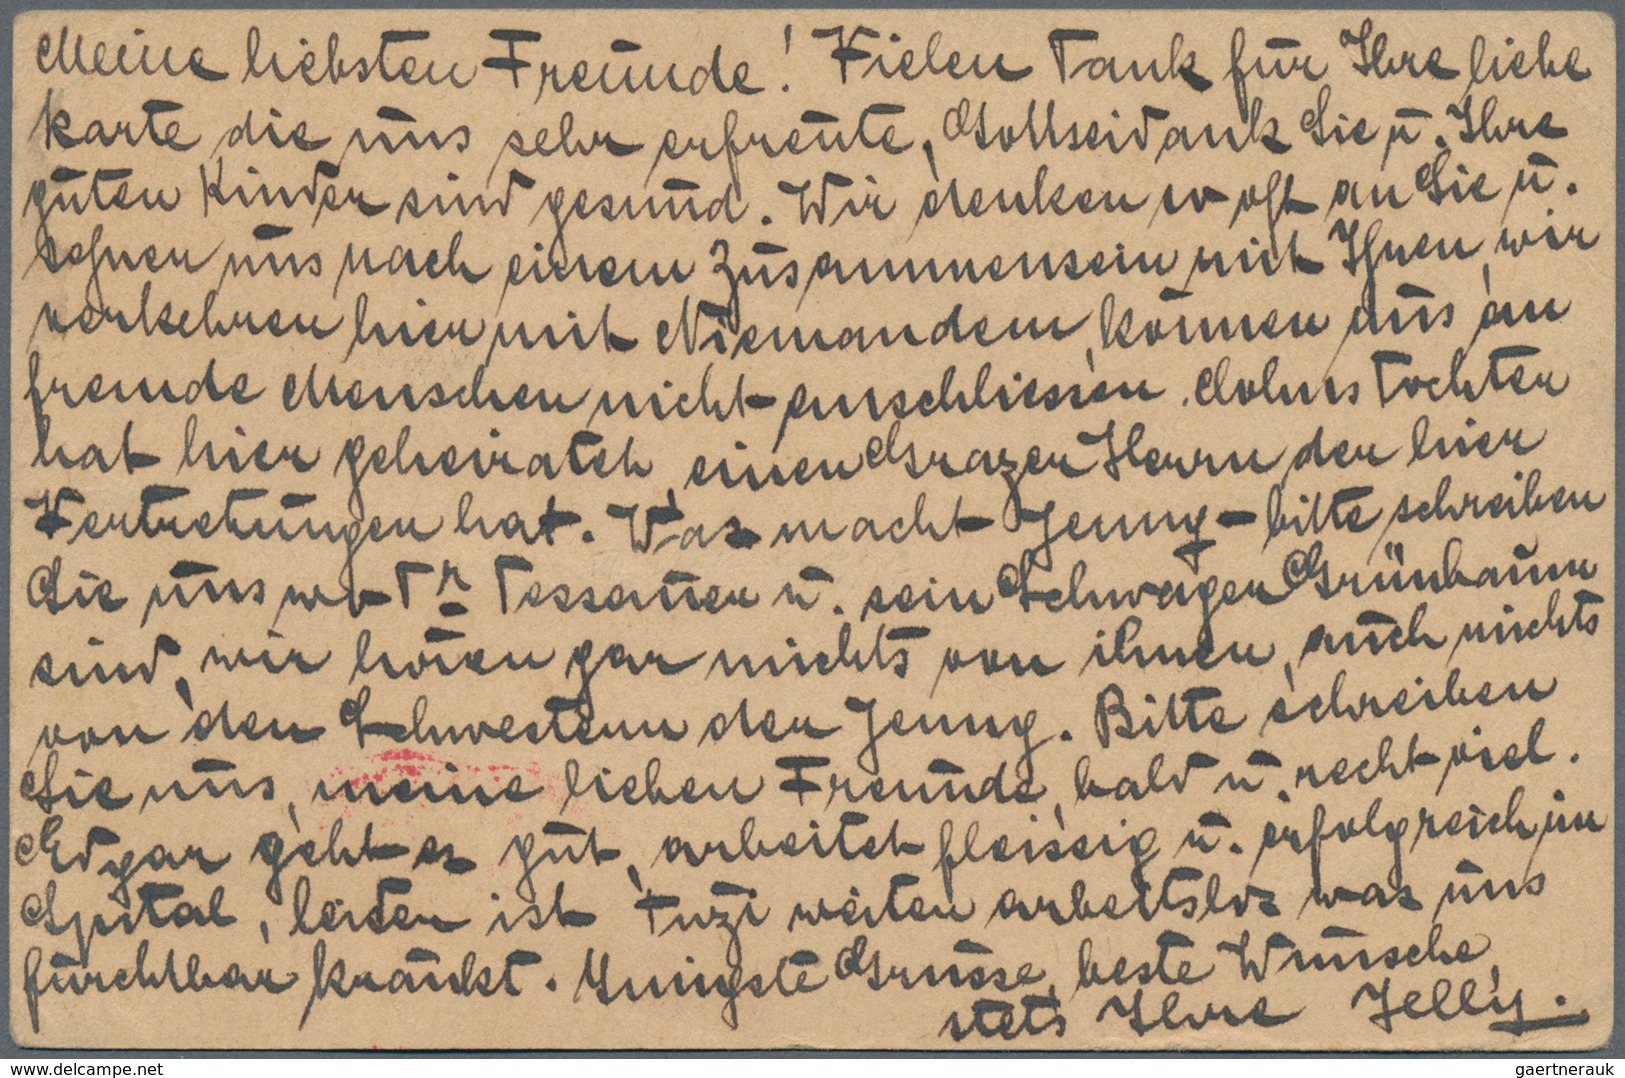 Meine liebsten Freunde! Vielen Dank für Ihre liebe
Karte die uns sehr erfreute, Gottseidank Sie u. Ihre
guten Kinder sind gesund. Wir denken so oft an Sie u.
sehnen uns nach einem Zusammensein mit Ihnen, wir
verkehren hier mit Niemandem, können uns an
fremde Menschen nicht anschliessen. Tochter
hat hier geheiratet, einen Grazer Herrn der hier
Vertretungen hat. Was macht Jenny - bitte schreiben
Sie uns wo Dr Tessauer u. sein Schwager Grünbaum
sind, wir hören gar nichts von ihnen, auch nichts
von den Schwestern der Jenny. Bitte schreiben
Sie uns, meine lieben Freunde, bald u. recht viel.
Edgar geht es gut, arbeitet fleissig u. erfolgreich im
Spital, leider ist weiter arbeitslos was uns
furchtbar kränkt. Innigste Grüsse, beste Wünsche,
stets Ihre Jelly.
www.delcampe.net
gaertnerauk